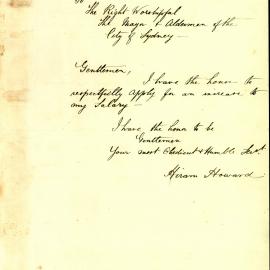 To
The Right Worshipful
The Mayor & Aldermen of the
City of Sydney —
Gentlemen,
I have the honor to
respectfully Apply for an increase to
my Salary —
I have the honor to be
Gentlemen
Your most Obedient & Humble Servt
Hiram Howard